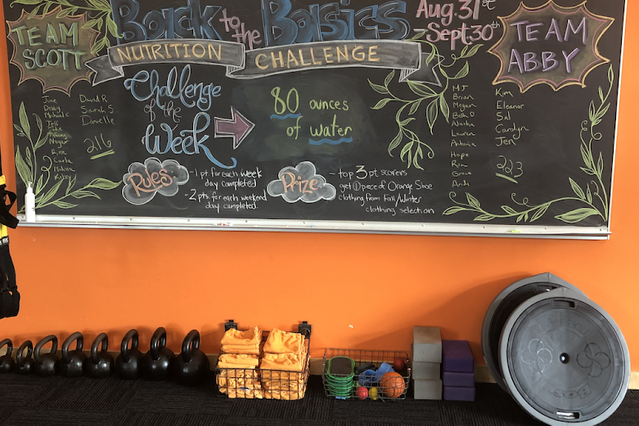 TEAM
SCOTT
Back to the Basics
NUTRITION CHALLENGE
Aug. 31st
Sept. 30th
TEAM
ABBY
Challenge
of the
Week
80 ounces
of water
David R
Sarah S
Danielle
216
MJ
Brian
Megan
Natasha
Lauren
Hope
Andi
Kim
Eleanor
Sal
Carolyn
Jen
223
Rules
-1 pt for each week
day completed
-2 pts for each weekend
day completed
Prize
-top 3 pt scorers
get 1 piece of Orange Shoe
clothing from Fall/Winter
clothing selection